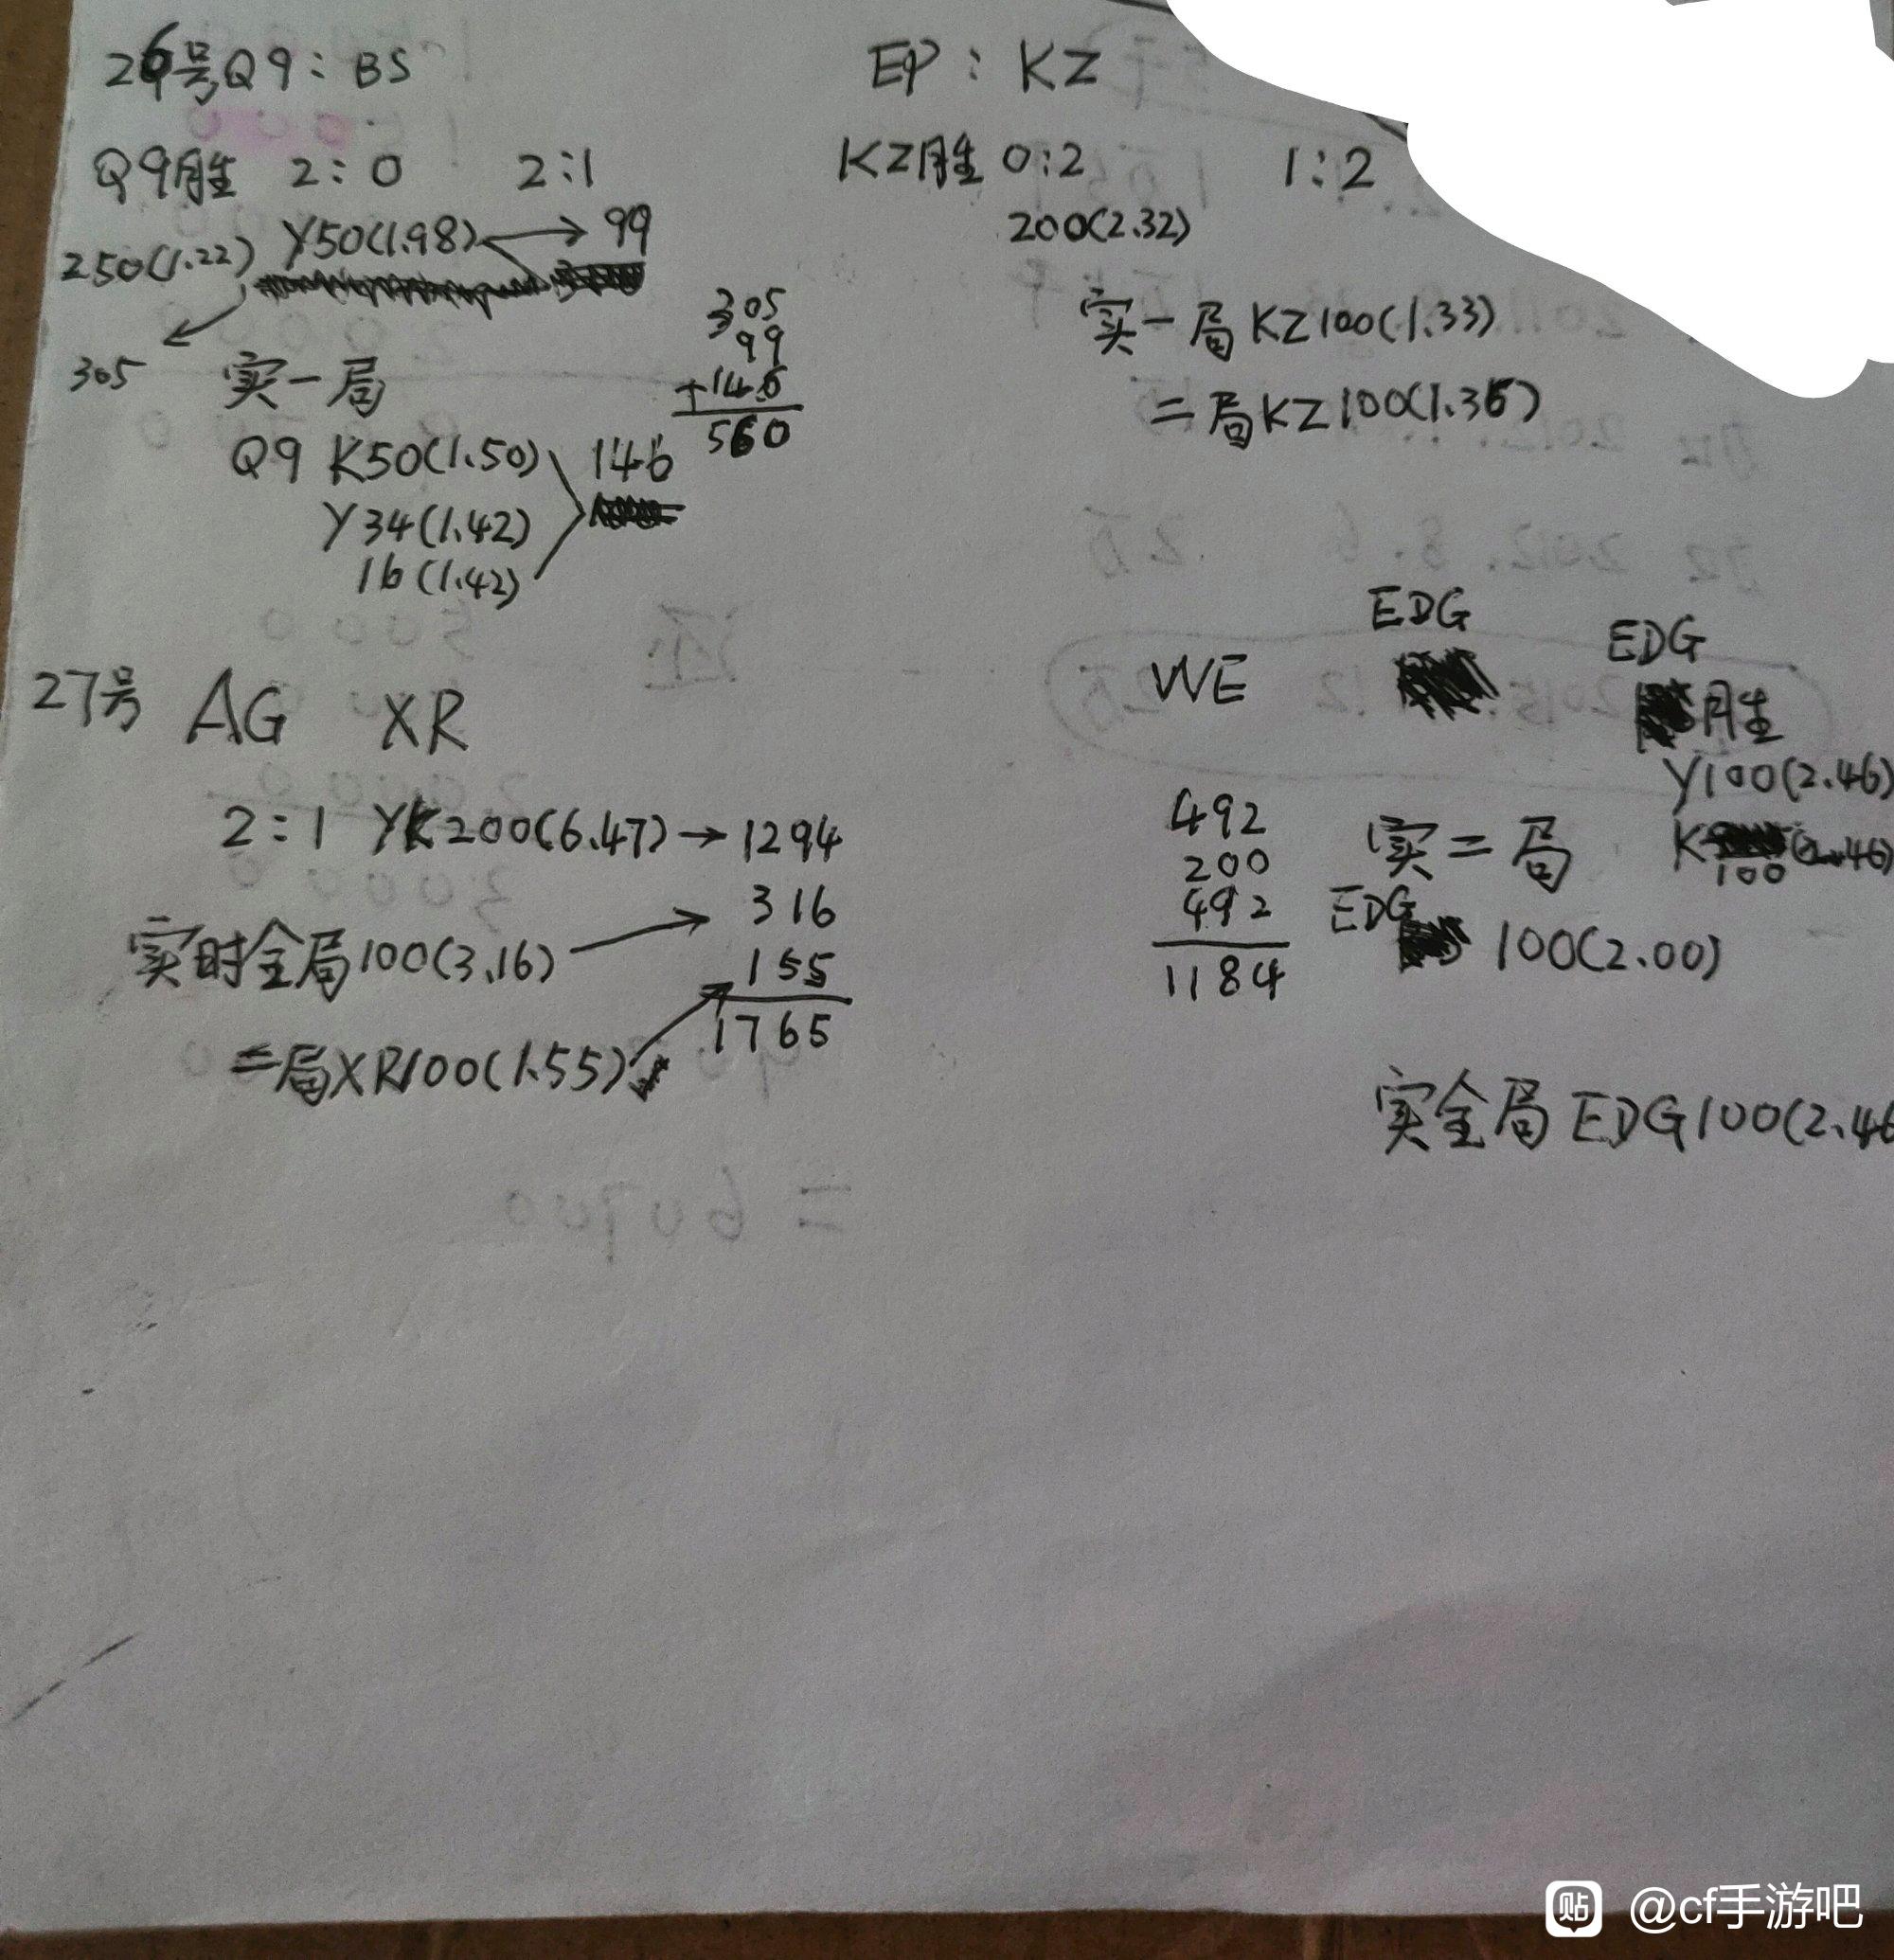 26号Q9：BS
Q9胜 2:0 2:1
250(1.22) Y50(1.98) → 99
305
实一局
Q9 K50(1.50) 146
Y34(1.42)
16(1.42)
305
99
+146
560
EP：KZ
KZ胜 0:2 1:2
200(2.32)
实一局KZ100(1.33)
二局KZ100(1.36)
27号 AG XR
2:1 YK200(6.47)→1294
实时全局100(3.16) → 316
二局XR100(1.55) → 155
1765
WE EDG
EDG胜
Y100(2.46)
K100(2.46)
实二局
EDG 100(2.00)
492
200
492
1184
实全局EDG100(2.46
贴 @cf手游吧